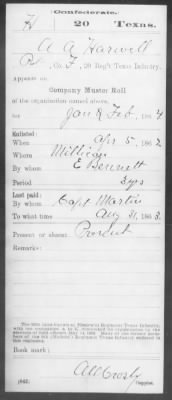 Confederate.
H 20 Texas.
A A Harwell
Pvt, Co. F, 20 Reg't Texas Infantry.
Appears on
Company Muster Roll
of the organization named above,
for Jan & Feb, 1864
Enlisted:
When Apr 5, 1862
Where Millican
By whom E Bennett
Period 3 yrs
Last paid:
By whom Capt Martin
To what time Aug 31, 1863
Present or absent Present
Remarks:
Book mark:
(642) Copyist.